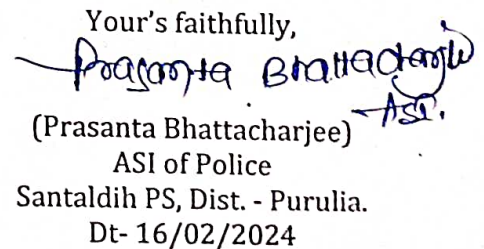 Your's faithfully,
Prasanta Bhattacharjee
ASI.
(Prasanta Bhattacharjee)
ASI of Police
Santaldih PS, Dist. - Purulia.
Dt- 16/02/2024